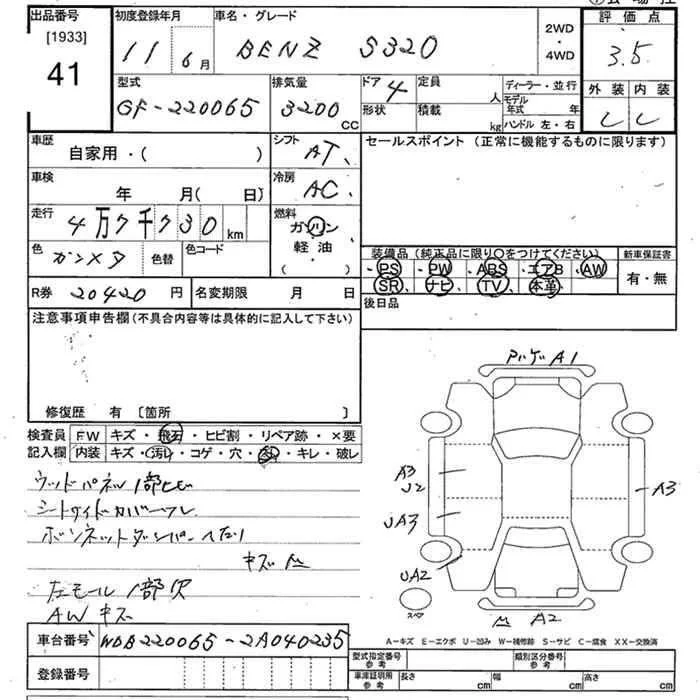 出品番号 初度登録年月 車名・グレード 2WD・4WD 評価点
[1933] 41 11年6月 BENZ S320 3.5
型式 排気量 ドア 定員 人 ディーラー・並行 外装 内装
GF-220065 3200cc 4 形状 積載 kg モデル年式 年 ハンドル 左・右 C C
車歴 自家用・( ) シフト AT セールスポイント(正常に機能するものに限ります)
車検 年 月( 日) 冷房 AC
走行 4万7千730km 燃料 ガソリン 軽油 ( )
色 ガンメタ 色替 色コード 装備品(純正品に限り○をつけてください) 新車保証書
・PS ・PW ・ABS ・エアB ・AW 有・無
・SR ・ナビ ・TV ・本革
R券 20420円 名変期限 月 日 後日品
注意事項申告欄(不具合内容等は具体的に記入して下さい)
修復歴 有 [箇所 ]
検査員記入欄 FW キズ・飛石・ヒビ割・リペア跡・×要
内装 キズ・汚れ・コゲ・穴・・キレ・破レ
ウッドパネル1部ヒビ
シートサイドカバー
ボンネットダンパー
キズ
左モール1部欠
AW キズ
A1
A3
J2
A3
UA3
UA2
スペア
A2
A-キズ E-エクボ U-凹み W-補修跡 S-サビ C-腐食 XX-交換済
車台番号 WDB220065-2A040235 型式指定番号 参考 類別区分番号 参考
登録番号 車庫証明用 参考 長さ cm 幅 cm 高さ cm